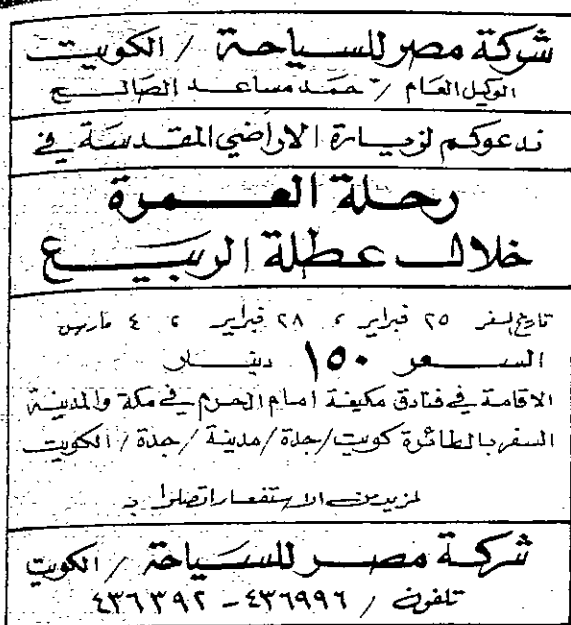 شركة مصر للسياحة / الكويت
الوكيل العام / حمد مساعد الصالح
ندعوكم لزيارة الاراضي المقدسة في
رحلة العمرة
خلال عطلة الربيع
تاريخ السفر ٢٥ فبراير ، ٢٨ فبراير ، ٤ مارس
السعر ١٥٠ دينار
الاقامة في فنادق مكيفة امام الحرم في مكة والمدينة
السفر بالطائرة كويت/جدة/مدينة/جدة/الكويت
لمزيد من الاستفسار اتصلوا بـ
شركة مصر للسياحة / الكويت
تلفون / ٤٣٦٩٩٦ - ٤٣٦٣٩٢